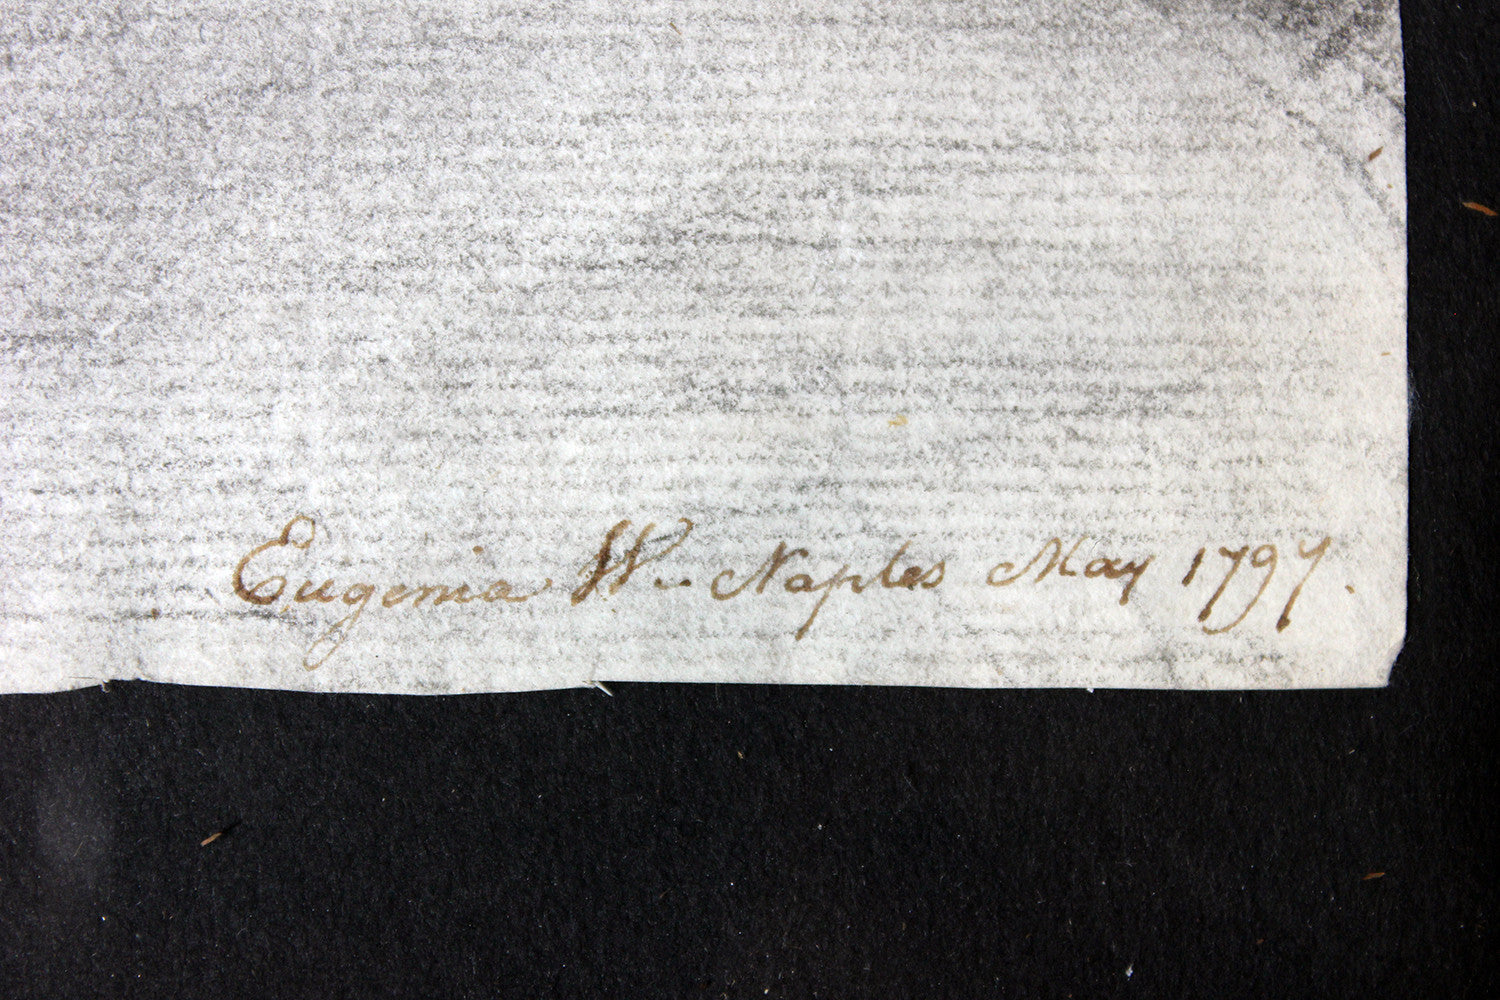 Eugenia W.. Naples May 1797.